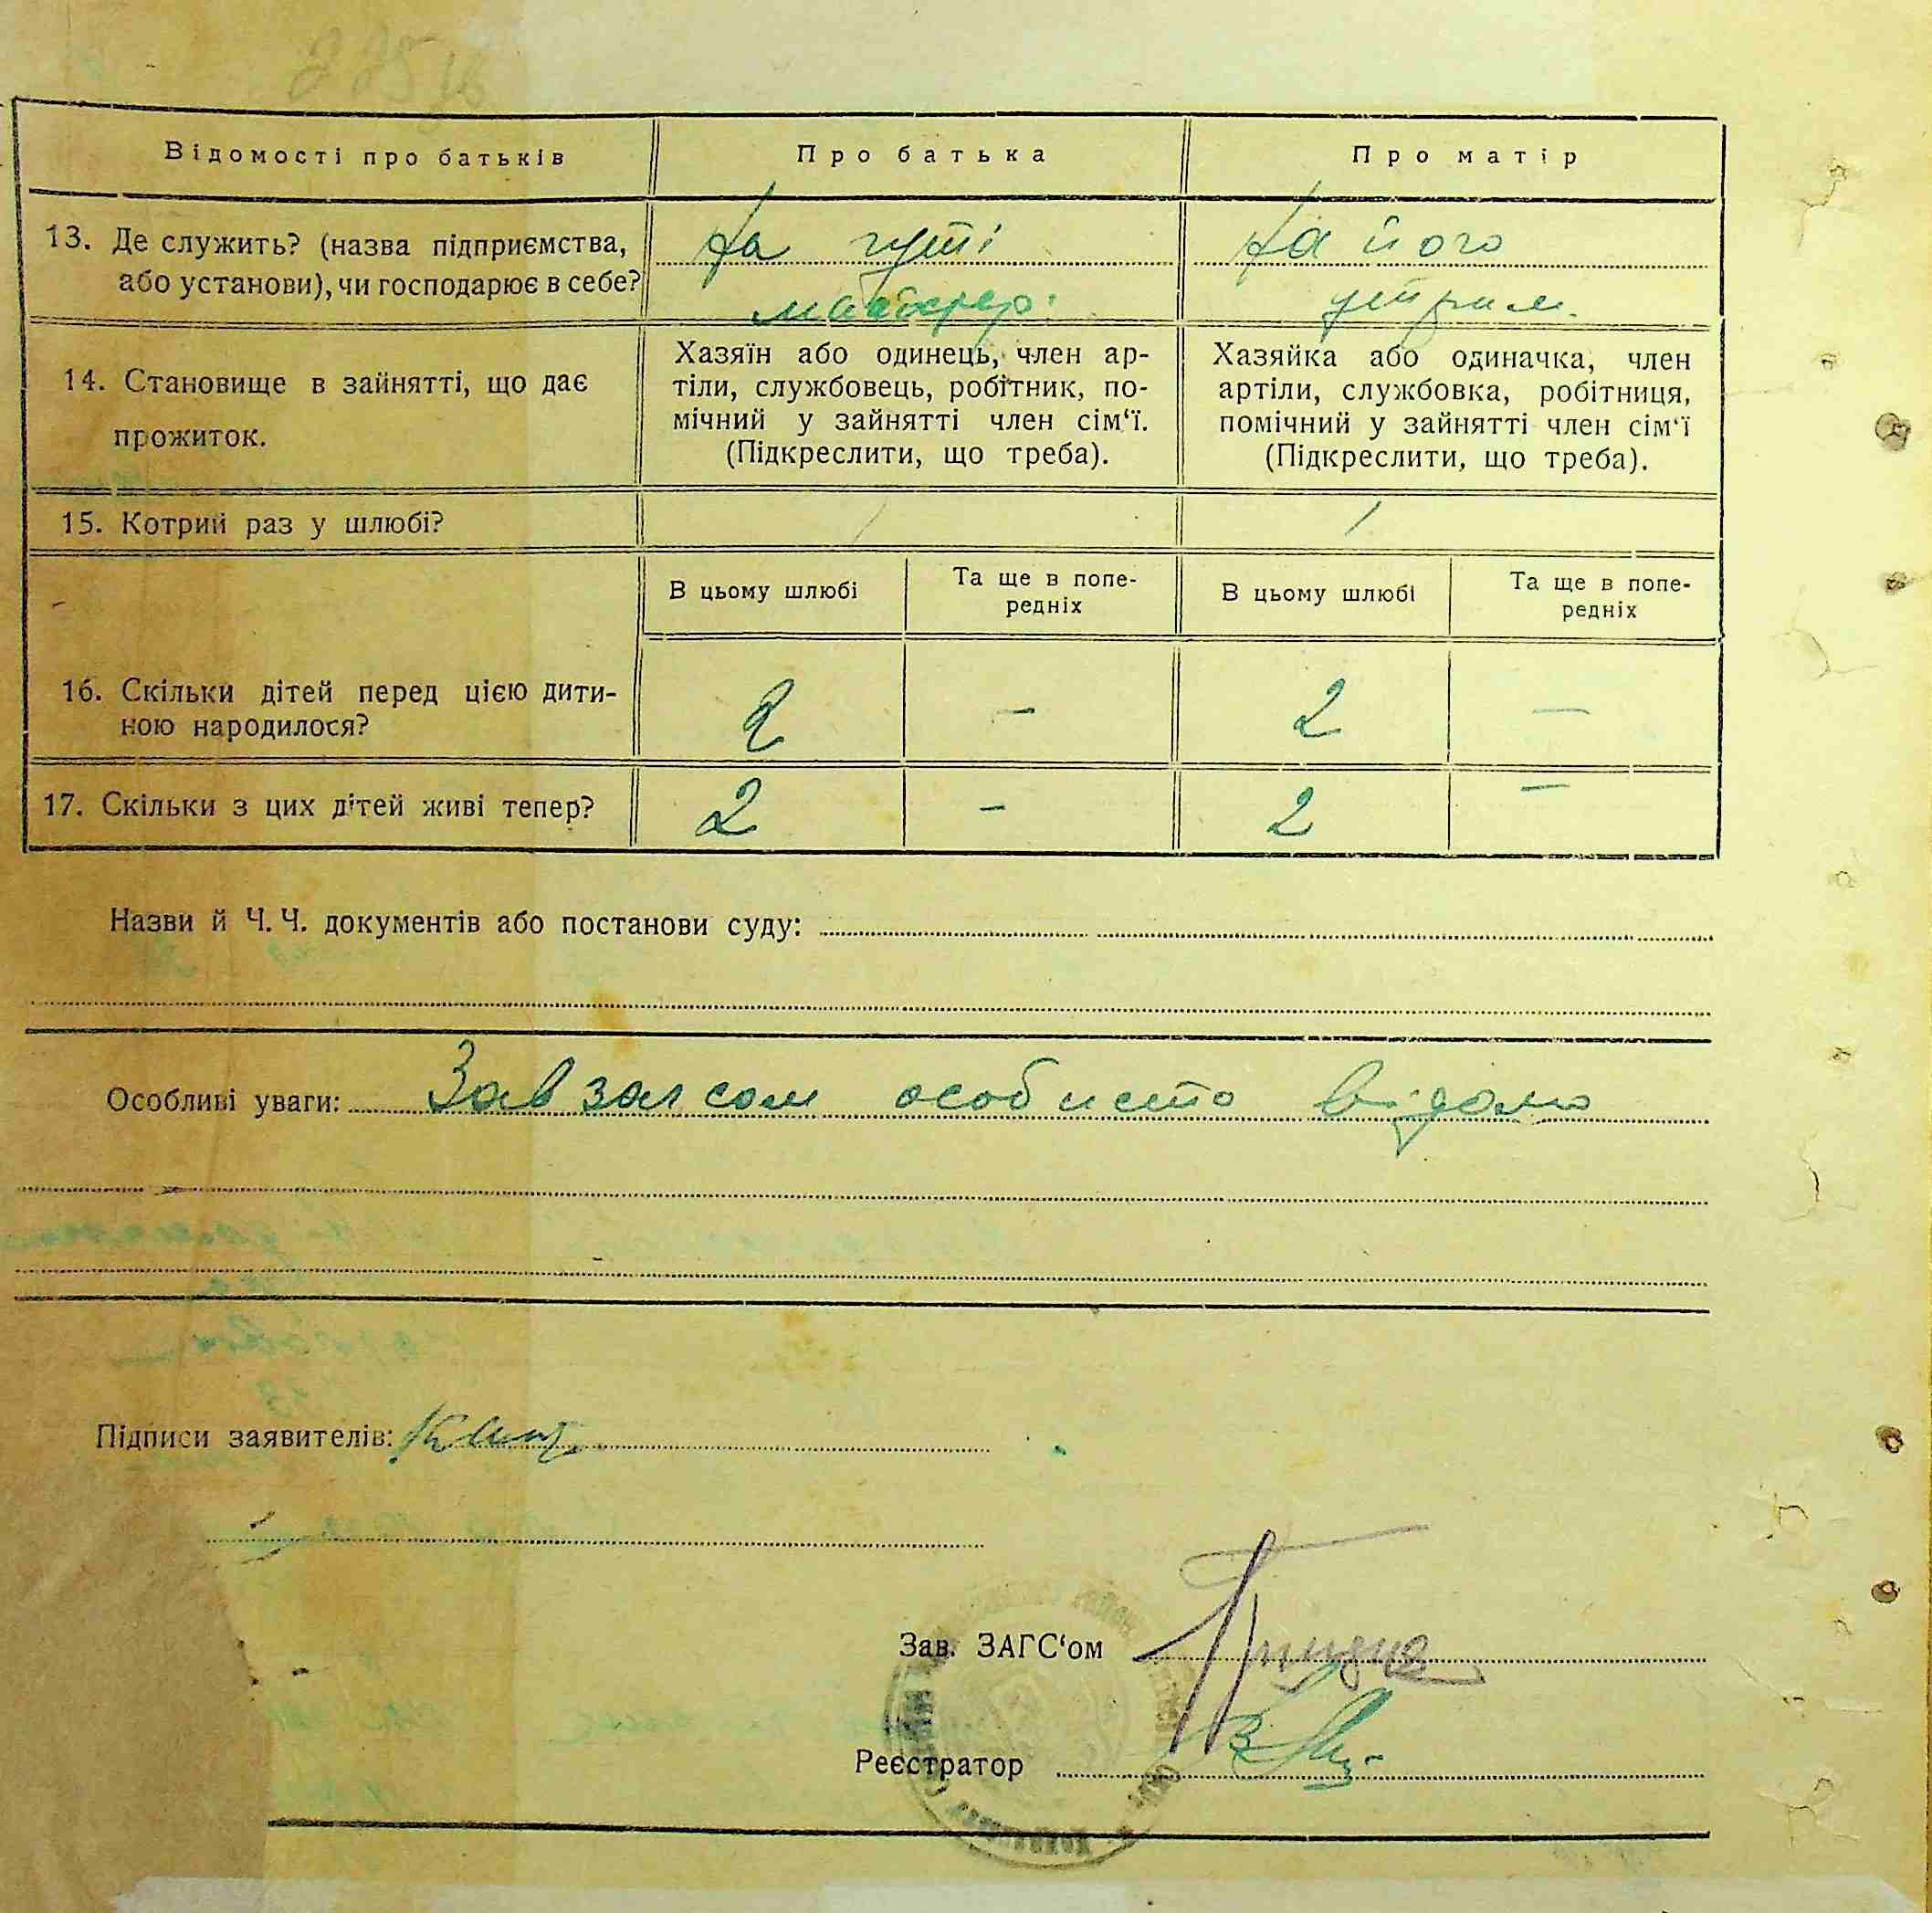 Відомості про батьків
Про батька
Про матір
13. Де служить? (назва підприємства, або установи), чи господарює в себе?
На гуті
майстер.
На його
утрим.
14. Становище в зайнятті, що дає прожиток.
Хазяїн або одинець, член ар-
тіли, службовець, робітник, по-
мічний у зайнятті член сім‘ї.
(Підкреслити, що треба).
Хазяйка або одиначка, член
артіли, службовка, робітниця,
помічний у зайнятті член сім‘ї
(Підкреслити, що треба).
15. Котрий раз у шлюбі?
/
/
В цьому шлюбі
Та ще в попе-
редніх
В цьому шлюбі
Та ще в попе-
редніх
16. Скільки дітей перед цією дити-
ною народилося?
2 – 2 –
17. Скільки з цих дітей живі тепер?
2 – 2 –
Назви й Ч. Ч. документів або постанови суду:
Особливі уваги: Зав загсом особисто відомо
Підписи заявителів:
Зав. ЗАГС‘ом
Реєстратор